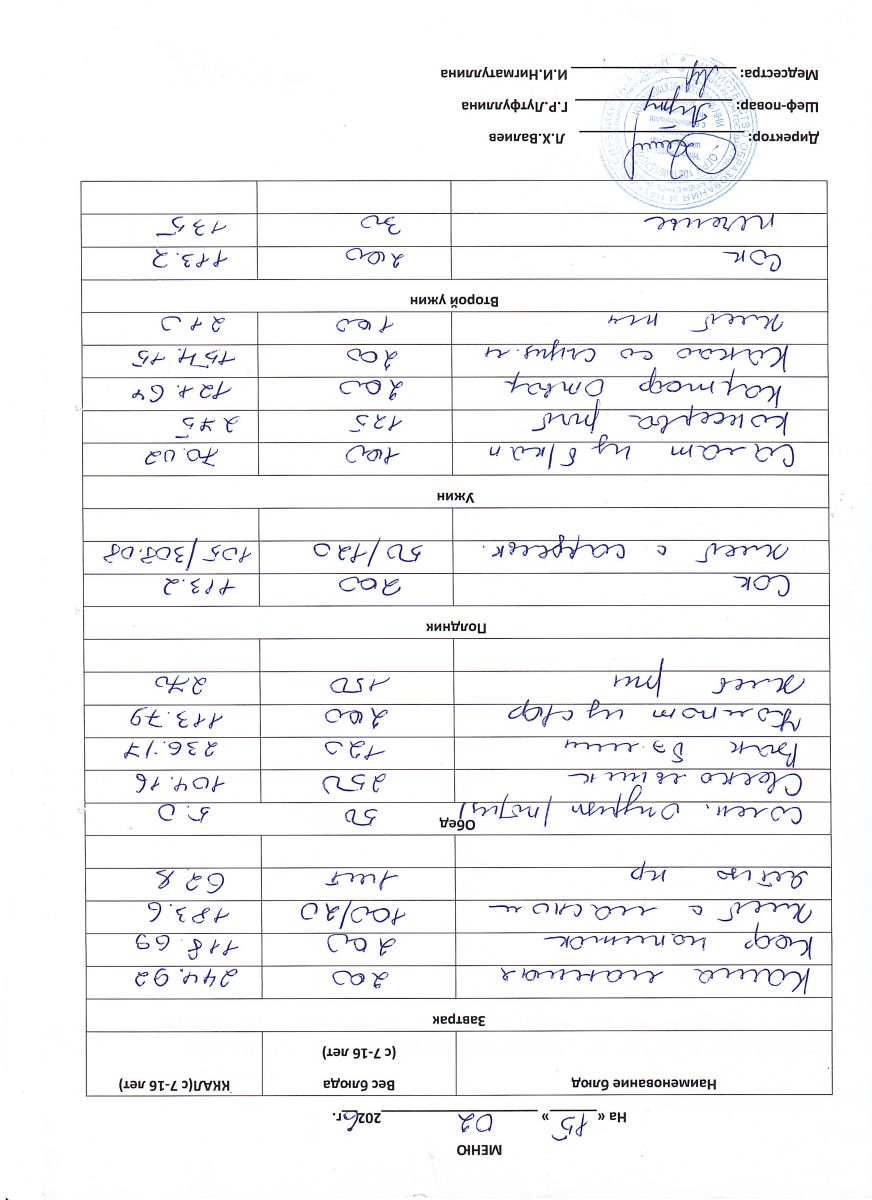 МЕНЮ
На « 15 » 02 2026 г.
Наименование блюд Вес блюда (с 7-16 лет) ККАЛ(с 7-16 лет)
Завтрак
Каша манная 200 244.92
Коф напиток 200 118.69
Хлеб с маслом 100/20 183.6
яйцо 1шт 62.8
Обед
Солен. Огурцы 50 5.0
Свекольник 250 104.16
120 236.17
Компот из с/фр 200 113.79
Хлеб рж 150 270
Полдник
Сок 200 113.2
Хлеб с 50/120 105/308.08
Ужин
Салат из б/кап 100 70.02
Консерва рыб 125 275
Картоф Отвар 200 121.64
Какао со сгущ. м 200 154.15
Хлеб пш 100 210
Второй ужин
Сок 200 113.2
печенье 30 135
Директор: Л.Х.Валиев
Шеф-повар: Г.Р.Лутфуллина
Медсестра: И.И.Нигматуллина